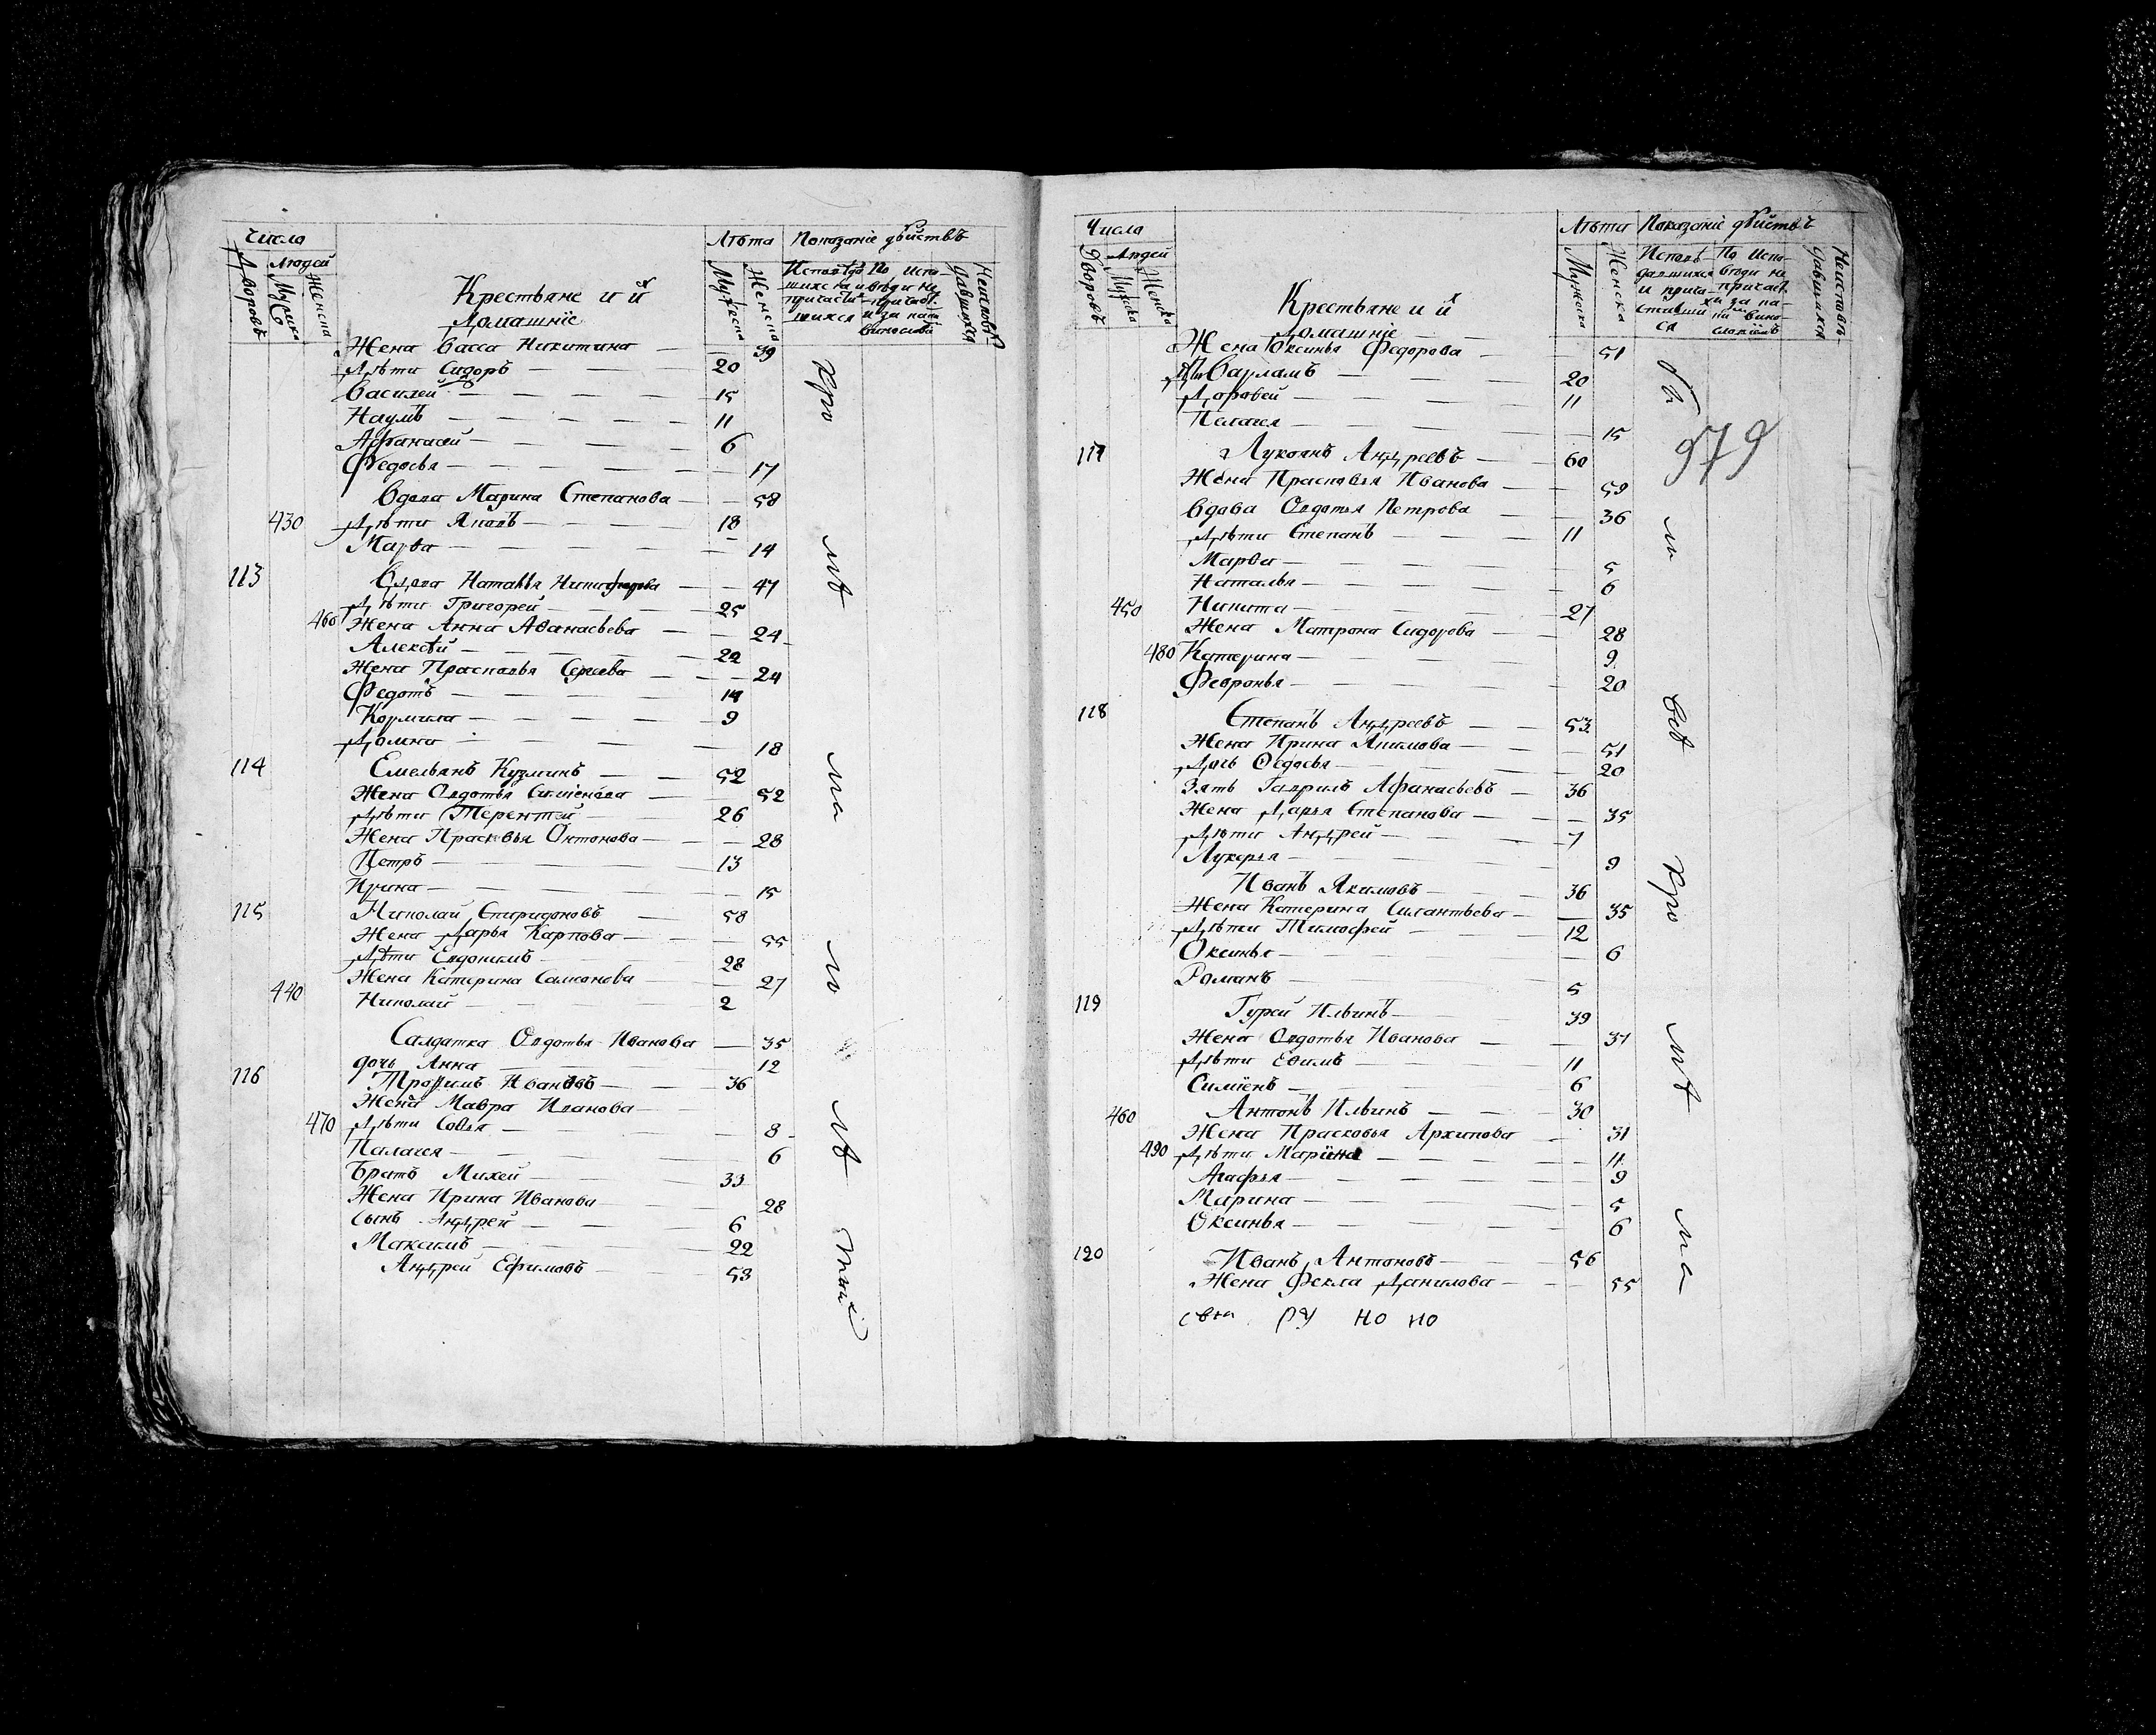 Число
Людей
Дворовъ
Мужска
Женска
Крестьяне и ихъ
Домашніе
Лѣта
Мужеска
Женска
Показаніе дѣйствъ
Жена Васса Никитина — 39
Дѣти Сидоръ — 20
Василей — 15
Наумъ — 11
Афанасей — 6
Федосья — 17
Вдова Марина Степанова — 58
430 Дѣти Яковъ — 18
Марѳа — 14
113 Вдова Наталья Никифорова — 47
Дѣти Григорей — 25
460 Жена Анна Аѳанасьева — 24
Алексѣй — 22
Жена Прасковья Сергеева — 24
Федотъ — 14
Кормила — 9
Домна — 18
114 Емельянъ Кузминъ — 52
Жена Овдотья Симіонова — 52
Дѣти Терентей — 26
Жена Прасковья Онтонова — 28
Петръ — 13
Ирина — 15
115 Николай Спиридоновъ — 58
Жена Дарья Карпова — 55
Дѣти Евдокимъ — 28
Жена Катерина Самсонова — 27
440 Николай — 2
Салдатка Овдотья Иванова — 35
дочь Анна — 12
116 Трофимъ Ивановъ — 36
Жена Мавра Иванова —
470 Дѣти Софья — 8
Палагея — 6
Братъ Михей — 33
Жена Ирина Иванова — 28
Сынъ Андрей — 6
Максимъ — 22
Андрей Ефимовъ — 53
Числа
Людей
Дворовъ
Мужска
Женска
Крестьяне и ихъ
Домашніе
Лѣта
Мужеска
Женска
Показаніе дѣйствъ
Жена Оксинья Федорова — 51
Дѣти Варламъ — 20
Дорофей — 11
Пелагея — 15
979
117 Лукоянъ Андреевъ — 60
Жена Прасковья Иванова — 59
Вдова Овдотья Петрова — 36
Дѣти Степанъ — 11
Марѳа — 5
Наталья — 6
450 Никита — 27
Жена Матрона Сидорова — 28
480 Катерина — 9
Февронья — 20
118 Степанъ Андреевъ — 53
Жена Ирина Якимова — 51
Дочь Ѳедосья — 20
Зять Гаврилъ Афанасьевъ — 36
Жена Дарья Степанова — 35
Дѣти Андрей — 7
Лукерья — 9
Иванъ Якимовъ — 36
Жена Катерина Силантьева — 35
Дѣти Тимофей — 12
Оксинья — 6
Романъ — 5
119 Гурей Ильинъ — 39
Жена Овдотья Иванова — 37
Дѣти Ефимъ — 11
Симіонъ — 6
460 Антонъ Ильинъ — 30
Жена Прасковья Архипова — 31
490 Дѣти Марина — 11
Агафья — 9
Марина — 5
Оксинья — 6
120 Иванъ Антоновъ — 56
Жена Фекла Данилова — 55